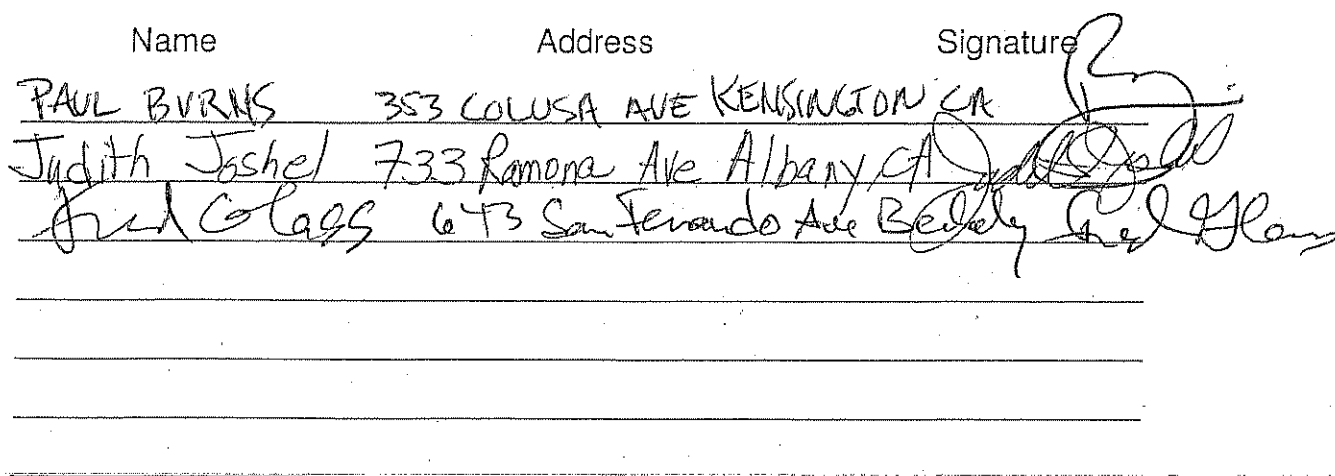 Name Address Signature
PAUL BURNS 353 COLUSA AVE KENSINGTON CA
Judith Joshel 733 Ramona Ave Albany, CA
Fred Glass 643 San Fernando Ave Berkeley Fred Glass